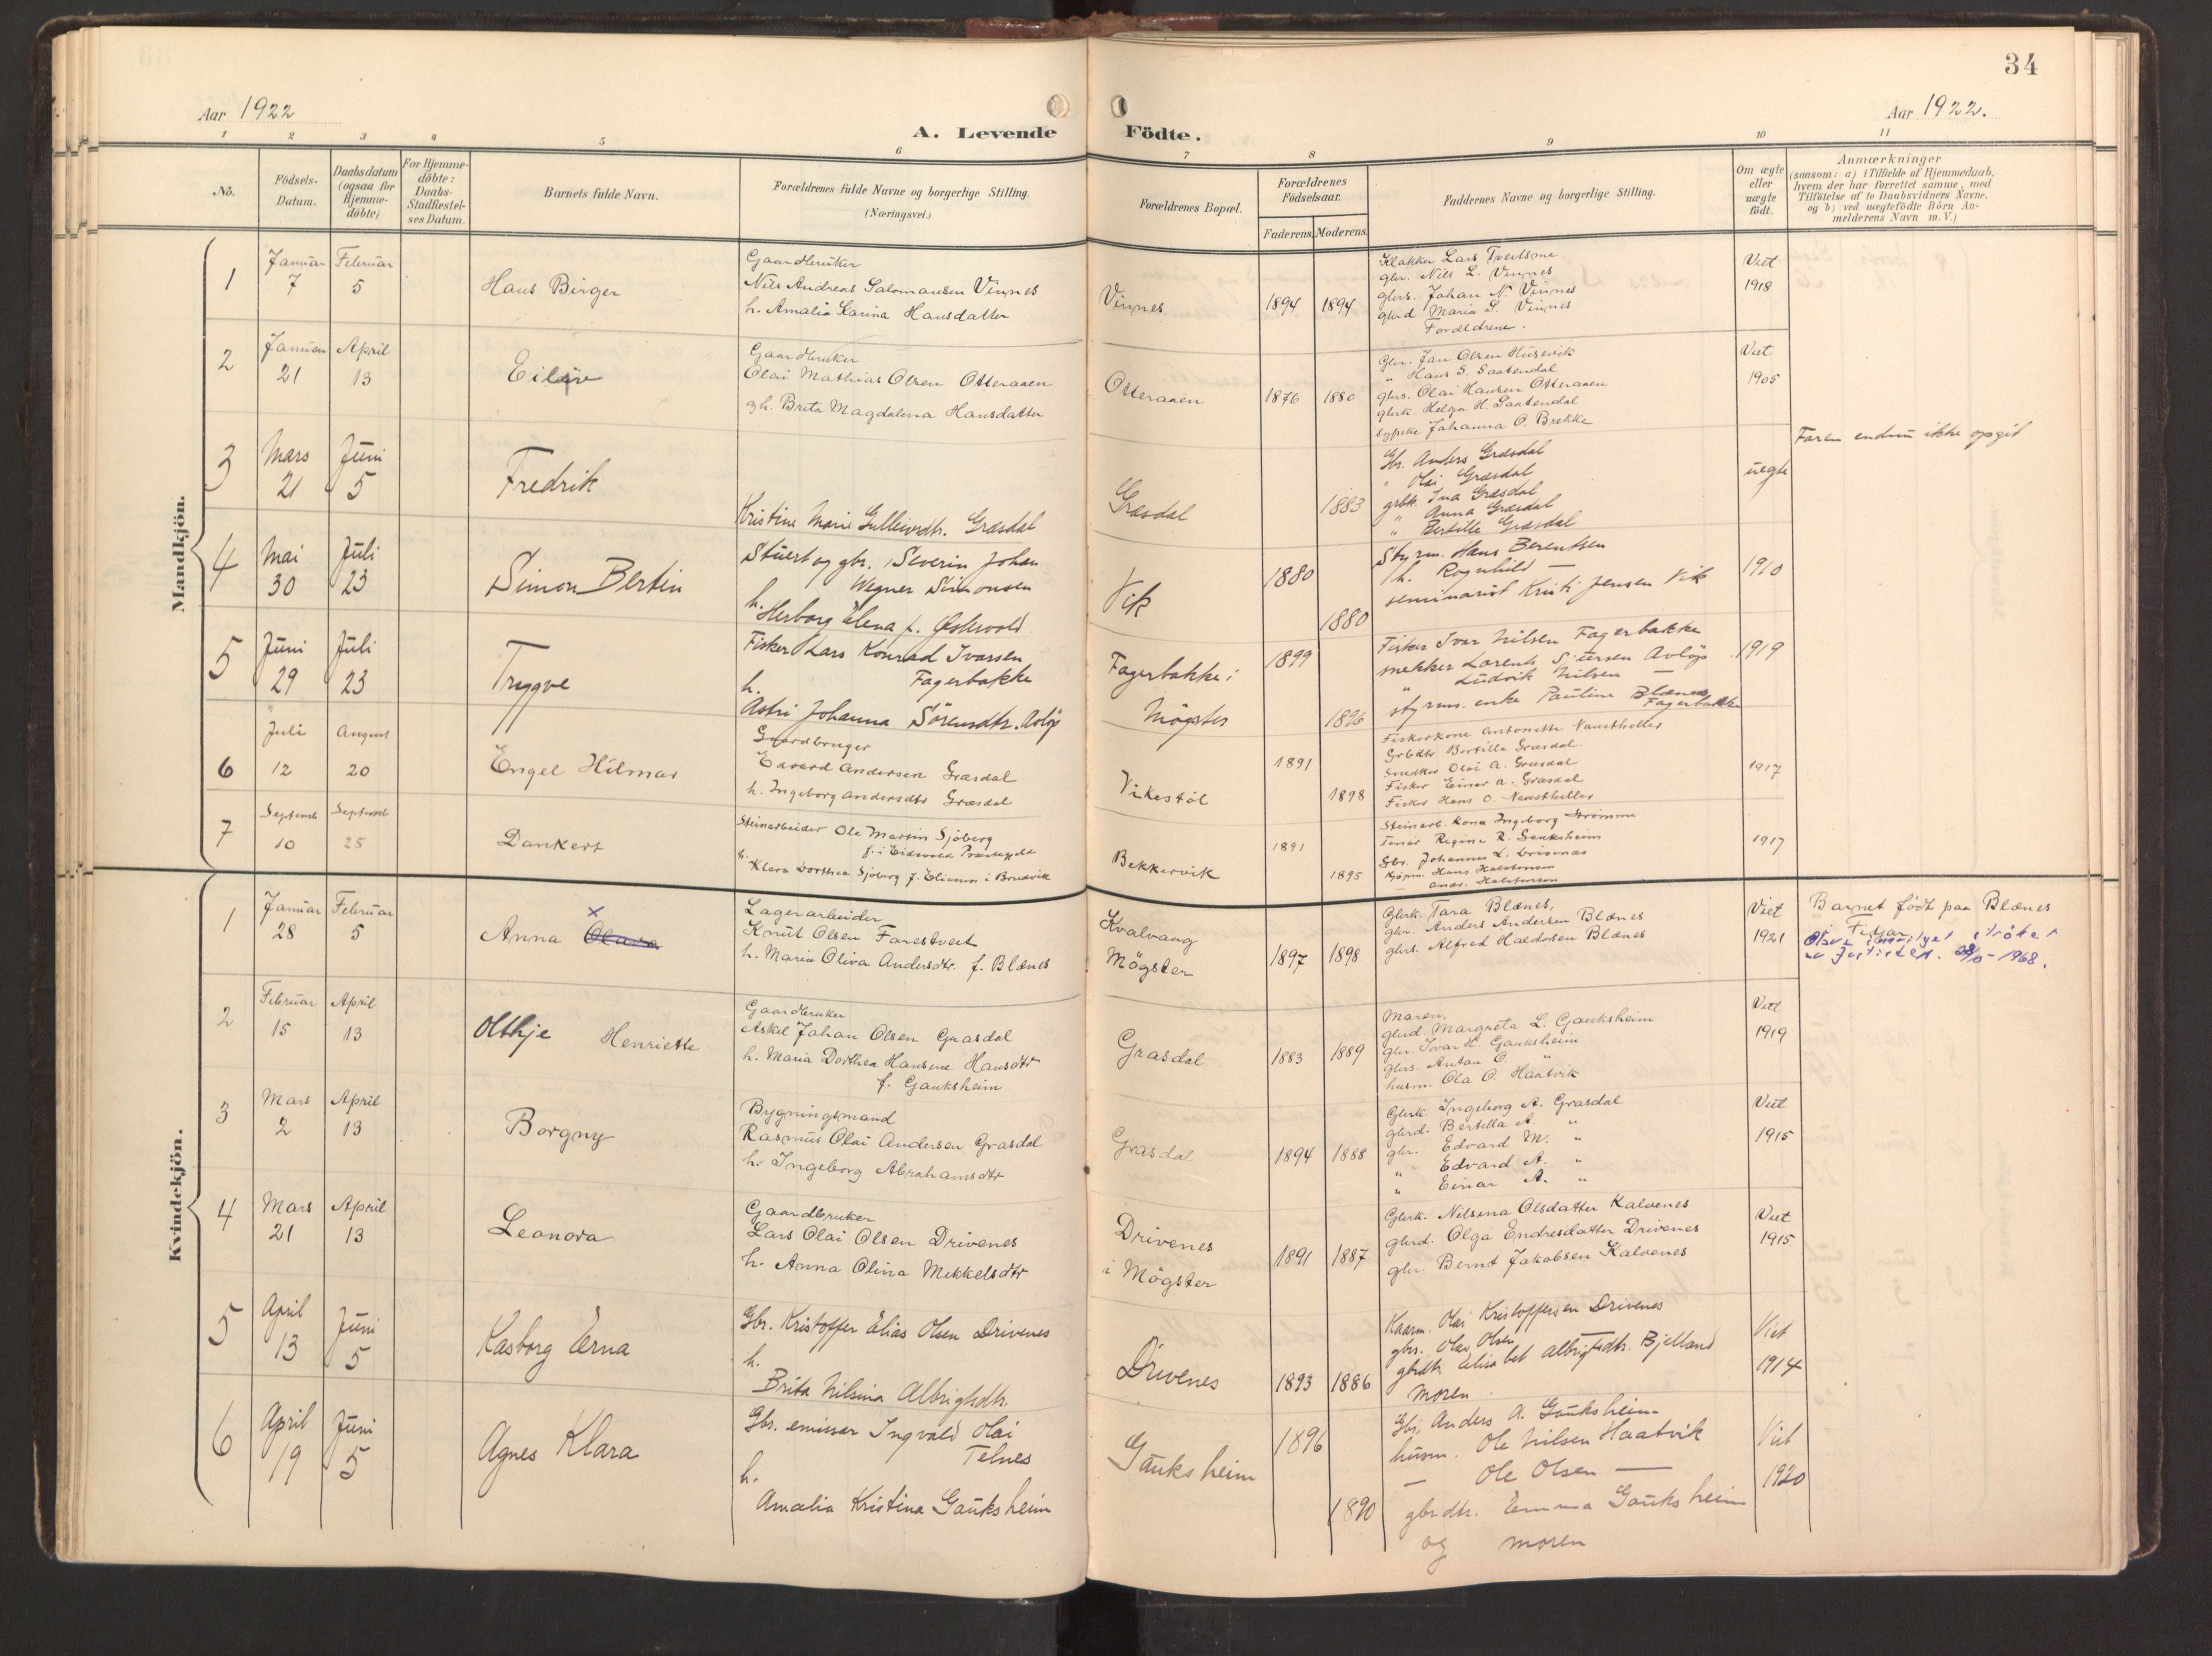 34
Aar 1922
Aar 1922.
A. Levende Födte.
1 2 3 4 5 6 7 8 9 10 11
No.
Födsels-
Datum.
Daabsdatum
(ogsaa for
Hjemme-
döbte)
For Hjemme-
döbte:
Daabs-
Stadfæstel-
ses Datum.
Barnets fulde Navn.
Forældrenes fulde Navne og borgerlige Stilling.
(Næringsvei.)
Forældrenes Bopæl.
Forældrenes
Födselsaar.
Faderens. Moderens.
Faddernes Navne og borgerlige Stilling.
Om ægte
eller
uægte
födt.
Anmærkninger
(saasom: a) i Tilfælde af Hjemmedaab,
hvem der har forrettet samme, med
Tilföielse af to Daabsvidners Navne.
og b) ved uægtefödte Börn An-
melderens Navn m. V.)
Mandkjön.
1
Januar 7
Februar 5
Hans Birger
Gaardbruker
Nils Andreas Salomonsen Vinnes
h. Amalia Karina Hansdatter
Vinnes
1894 1894
Klokker Lars Tveitsme
gbr. Nils L. Vinnes
gbrs. Johan N. Vinnes
gbrd Maria S. Vinnes
Foreldrene.
Viet
1918
2
Januar 21
April 13
Eiliv
Gaardbruker
Olai Mathias Olsen Otteraaen
gh. Brita Magdalena Hansdatter
Otteraaen
1876 1880
gbr. Jan Olsen Husevik
" Hans S. Saatendal
gbrs. Olai Hansen Otteraaen
gbrk. Helga H. Saatendal
sypike Johanna O. Brekke
Viet
1905
3
Mars 21
Juni 5
Fredrik
Kristine Marie Gulleivsdtr. Græsdal
Græsdal
1883
Gbr. Anders Græsdal
" Olai Græsdal
grbk. Ina Græsdal
" Anna Græsdal
" Bertille Græsdal
uegte
Faren endnu ikke opgit
4
Mai 30
Juli 23
Simon Bertin
Stuert og gbr. Severin Johan
Wegner Simonsen
h. Herborg Elena f. Østervold
Vik
1880
1880
Styrm. Hans Berentsen
h. Rognhild —
seminarist Krist. Jensen Vik
1910
5
Juni 29
Juli 23
Tryggve
Fisker Lars Konrad Ivarsen
Fagerbakke
h.
Astri Johanna Sörensdtr. Avlöp
Fagerbakke i
Mögster
1899
1896
Fisker Ivar Nilsen Fagerbakke
snekker Lorents Siversen Avlöp
" Ludvik Nilsen —
styrms. enke Pauline Blænes
Fagerbakke
1919
6
Juli 12
August 20
Engel Hilmar
Gaardbruger
Edvard Andersen Græsdal
h. Ingeborg Andersdtr Græsdal
Vikestöl
1891
1898
Fiskerkone Antonette Naustheller
Grbdtr Bertilla Græsdal
Snedker Olai A. Græsdal
Fisker Einar A. Græsdal
Fisker Hans O. Naustheller
1917
7
Septemb 10
Septemb 25
Dankert
Steinarbeider Ole Martin Sjöberg
f. i Eidsvold Præstegjeld
h. Klara Dorthea Sjöberg f. Eliassen i Brudvik
Bekkervik
1891
1895
Steinarb. kone Ingeborg Strömme
Tener Regine R. Gauksheim
Gbr. Johannes L. Drivenes
Kjöpm. Hans Halstensen
— Andr. Halstensen
1917
Kvindekjön.
1
Januar 28
Februar 5
Anna Olava
x
Lagerarbeider
Knut Olsen Farestveit
h. Maria Oliva Andersdtr. f. Blænes
Kvalvaag
Mögster
1897 1898
Gbrk. Tara Blænes,
gbr. Anders Andersen Blænes
gbrs. Alfred Haldorsen Blænes
Viet
1921
Barnet födt paa Blænes
i Fitjar.
Olava strøket
av Just.dep. 1968.
2
Februar 15
April 13
Olthje Henriette
Gaardbruker
Askel Johan Olsen Grasdal
h. Maria Dorthea Hansine Hansdtr
f. Gauksheim
Grasdal
1883 1889
Moren,
gbrd. Margreta L. Gauksheim
gbr. Ivar H. Gauksheim
gbrs. Anton O. "
husm. Ola O. Haatvik
Viet
1919
3
Mars 2
April 13
Borgny
Bygningsmand
Rasmus Olai Andersen Grasdal
h. Ingeborg Abrahamsdtr
Grasdal
1894 1888
Gbrk. Ingeborg A. Grasdal
gbrd. Bertilla A. "
gbr. Edvard M. "
" Edvard A. "
" Einar A. "
Viet
1915
4
Mars 21
April 13
Leonora
Gaardbruker
Lars Olai Olsen Drivenes
h. Anna Olina Mikkelsdtr
Drivenes
i Mögster
1891 1887
Gbrk. Nilsina Olsdatter Kalvenes
gbrd. Olga Endresdatter Drivenes
gbr. Bernt Jakobsen Kalvenes
Viet
1915
5
April 13
Juni 5
Kasborg Erna
Gbr. Kristoffer Elias Olsen Drivenes
h.
Brita Nilsina Albrigtsdtr.
Drivenes
1893 1886
Kaarm. Olai Kristoffersen Drivenes
gbrs. Olav Olsen —
gbrdtr. Elisabet Albrigtsdtr. Bjelland
Moren
Viet
1914
6
April 19
Juni 5
Agnes Klara
Gbr. emissær Ingvald Olai
Telnes
h.
Amalia Kristina Gauksheim
Gauksheim
1896
1890
Gbr. Anders A. Gauksheim
husm. Ole Nilsen Haatvik
— Ole Olsen —
gbrdtr. Emma Gauksheim
og moren
Viet
1920